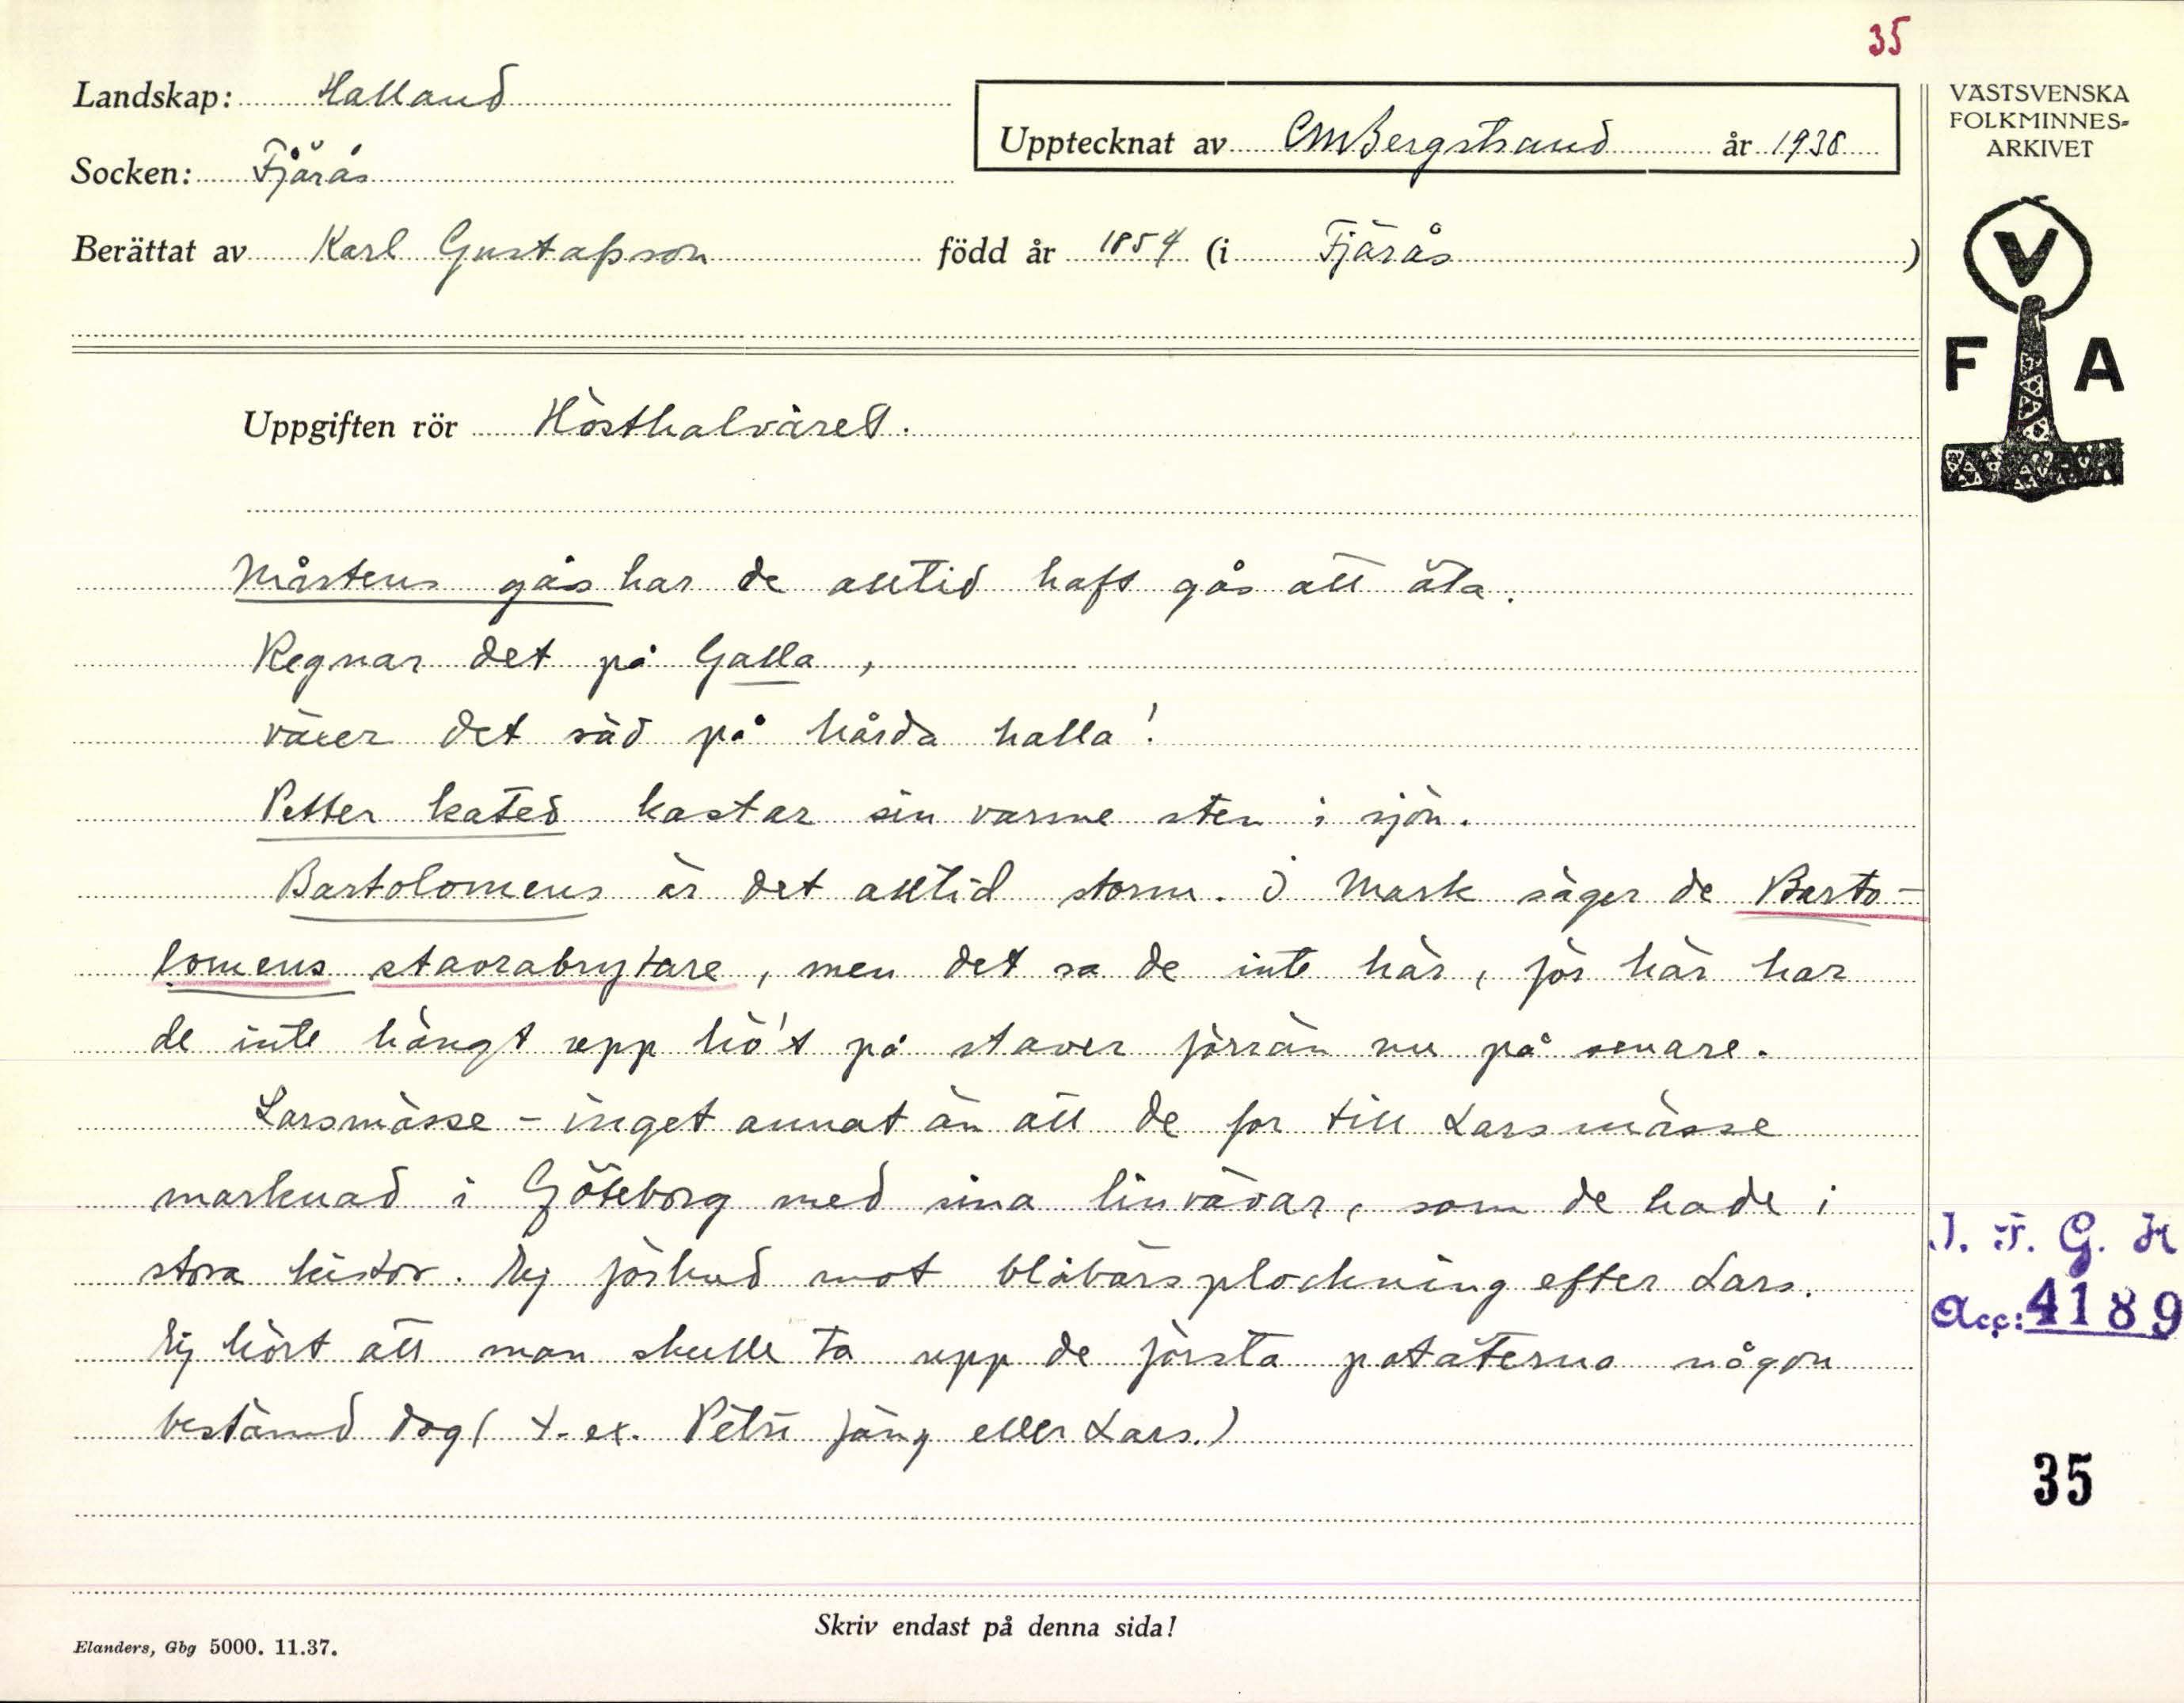 35
Landskap: Halland
Socken: Fjärås
Upptecknat av CMBergstrand år 1938
Berättat av Karl Gustafsson född år 1854 (i Fjärås)
VÄSTSVENSKA
FOLKMINNES-
ARKIVET
V
F A
Uppgiften rör Hösthalvåret.
Mårtens gås har de alltid haft gås att äta.
Regnar det på Galla,
växer det säd på hårda halla!
Petter kated kastar sin varme sten i sjön.
Bartolomeus är det alltid storm. I Mark säger de Barto-
lomeus stavrabrytare, men det sa de inte här, för här har
de inte hängt upp hö't på staver förrän nu på senare.
Larsmässe - inget annat än att de for till Larsmässe
marknad i Göteborg med sina linvävar, som de hade i
stora kistor. Ej förbud mot blåbärsplockning efter Lars.
Ej hört att man skulle ta upp de första potäterna någon
bestämd dag (t. ex. Petri fäng eller Lars.)
I. F. G. H
Acc: 4189
35
Skriv endast på denna sida!
Elanders, Gbg 5000. 11.37.